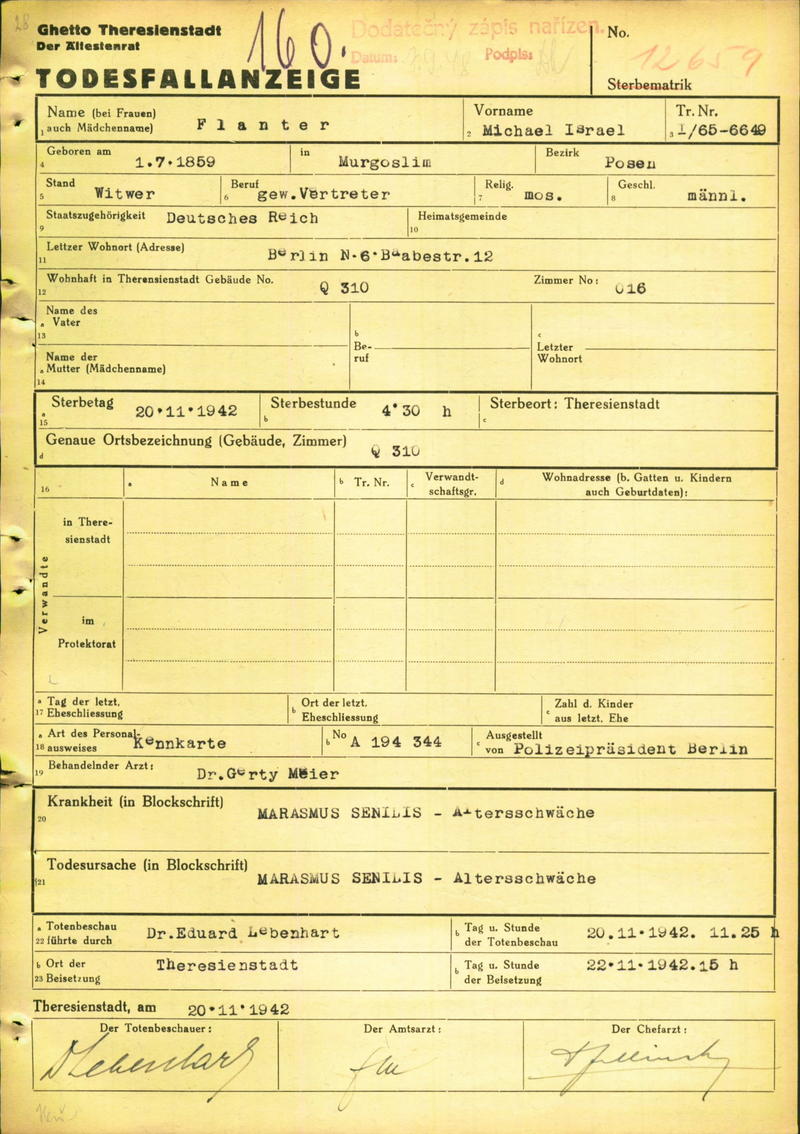 28
Ghetto Theresienstadt
Der Ältestenrat
160.
Dodatečný zápis nařízen.
Datum: Podpis:
No.
12659
Sterbematrik
TODESFALLANZEIGE
Name (bei Frauen)
1 auch Mädchenname) Flanter
Vorname
2 Michael Israel
Tr. Nr.
3 I/65-6649
Geboren am
4 1.7.1859
in
Murgoslim
Bezirk
Posen
Stand
5 Witwer
Beruf
6 gew.Vertreter
Relig.
7 mos.
Geschl.
8 männl.
Staatszugehörigkeit Deutsches Reich
9
Heimatsgemeinde
10
Lettzer Wohnort (Adresse)
11 Berlin N.6.Baabestr.12
Wohnhaft in Therensienstadt Gebäude No.
12 Q 310
Zimmer No: 016
Name des
a Vater
13
b
Be-
ruf
c
Letzter
Wohnort
Name der
a Mutter (Mädchenname)
14
Sterbetag
a 20.11.1942
15
Sterbestunde
b 4.30 h
Sterbeort: Theresienstadt
c
Genaue Ortsbezeichnung (Gebäude, Zimmer)
d Q 310
16
a Name
b Tr. Nr.
c Verwandt-
schaftsgr.
d Wohnadresse (b. Gatten u. Kindern
auch Geburtdaten):
Verwandte
in There-
sienstadt
im
Protektorat
a Tag der letzt.
17 Eheschliessung
b Ort der letzt.
Eheschliessung
c Zahl d. Kinder
aus letzt. Ehe
a Art des Personal-
18 ausweises Kennkarte
b No A 194 344
c Ausgestellt
von Polizeipräsident Berlin
Behandelnder Arzt:
19 Dr.Gerty Meier
Krankheit (in Blockschrift)
20 MARASMUS SENILIS - Altersschwäche
Todesursache (in Blockschrift)
21 MARASMUS SENILIS - Altersschwäche
a Totenbeschau
22 führte durch Dr.Eduard Lebenhart
b Tag u. Stunde
der Totenbeschau 20.11.1942. 11.25 h
b Ort der
23 Beisetzung Theresienstadt
b Tag u. Stunde
der Beisetzung 22.11.1942.15 h
Theresienstadt, am 20.11.1942
Der Totenbeschauer:
Der Amtsarzt:
Der Chefarzt: